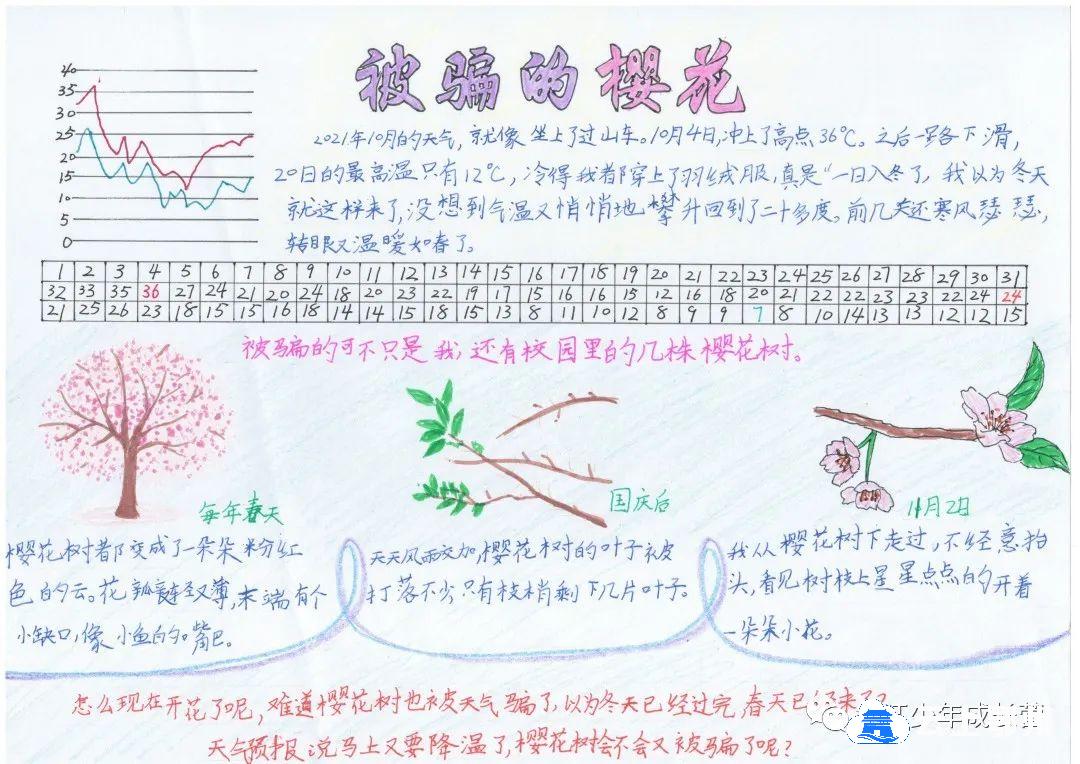 被骗的樱花
40
35
30
25
20
15
10
5
0
2021年10月的天气,就像坐上了过山车。10月4日,冲上了高点36℃。之后一路下滑,
20日的最高温只有12℃,冷得我都穿上了羽绒服,真是“一日入冬了,我以为冬天
就这样来了,没想到气温又悄悄地攀升回到了二十多度。前几天还寒风瑟瑟,
转眼又温暖如春了。
1 2 3 4 5 6 7 8 9 10 11 12 13 14 15 16 17 18 19 20 21 22 23 24 25 26 27 28 29 30 31
32 33 35 36 27 24 21 20 24 18 20 23 22 19 17 15 16 16 15 12 16 18 20 21 22 22 23 23 22 24 24
21 25 26 23 18 15 15 16 18 14 14 15 18 15 13 8 11 10 12 8 9 9 7 8 10 14 13 13 12 12 15
被骗的可不只是我,还有校园里的几株樱花树。
每年春天
樱花树都变成了一朵朵粉红
色的云。花瓣轻又薄,末端有个
小缺口,像小鱼的嘴巴。
国庆后
天天风雨交加,樱花树的叶子被
打落不少只有枝梢剩下几片叶子。
11月2日
我从樱花树下走过,不经意抬
头,看见树枝上星星点点的开着
一朵朵小花。
怎么现在开花了呢,难道樱花树也被天气骗了,以为冬天已经过完,春天已经来了?
天气预报说马上又要降温了,樱花树会不会又被骗了呢?